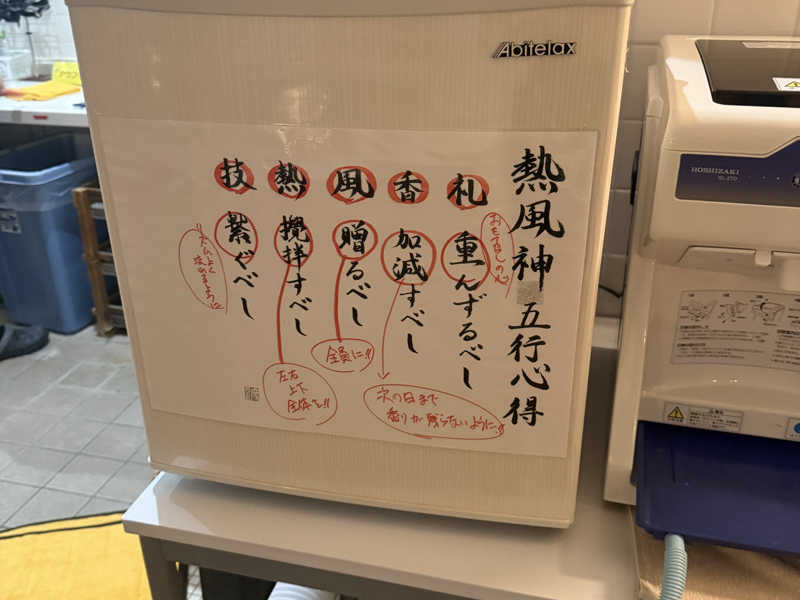 Abitelax
HOSHIZAKI
熱風神 五行心得
札 重んずるべし
おもてなしの心
香 加減すべし
次の日まで
香りが残らないように!!
風 贈るべし
全員に!!
熱 攪拌すべし
左右
上下
全体を!!
技 繋ぐべし